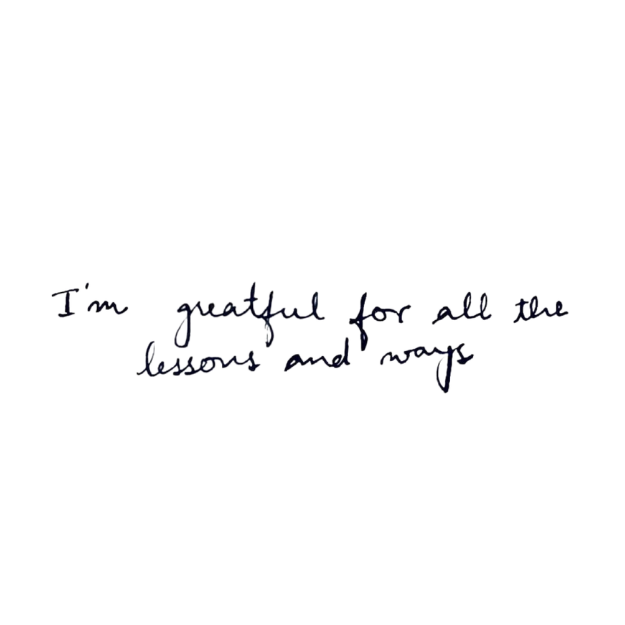 I'm greatful for all the
lessons and ways